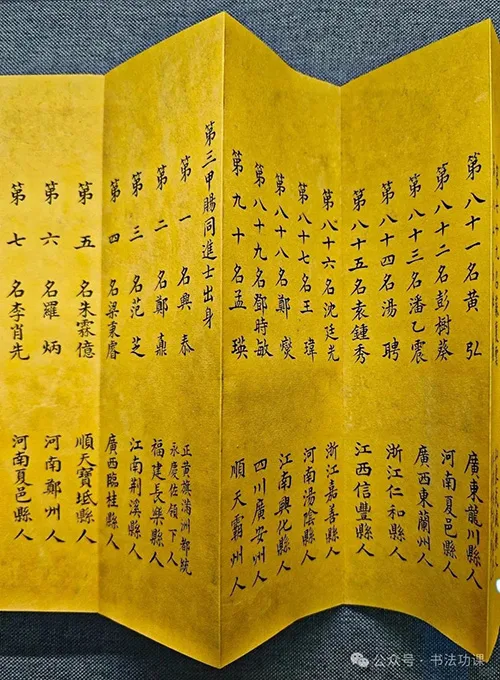 第八十一名黄弘 廣東龍川縣人
第八十二名彭樹葵 河南夏邑縣人
第八十三名潘乙震 廣西東蘭州人
第八十四名湯聘 浙江仁和縣人
第八十五名袁鍾秀 江西信豐縣人
第八十六名沈廷光 浙江嘉善縣人
第八十七名王瑋 河南湯陰縣人
第八十八名鄭燮 江南興化縣人
第八十九名鄧時敏 四川廣安州人
第九十名孟瑛 順天霸州人
第三甲賜同進士出身
第一名興泰 正黄旗滿洲都統永慶佐領下人
第二名鄭鼒 福建長樂縣人
第三名范芝 江南荆溪縣人
第四名梁秉睿 廣西臨桂縣人
第五名朱霖億 順天寶坻縣人
第六名羅炳 河南鄭州人
第七名李肖先 河南夏邑縣人
公众号·书法功课